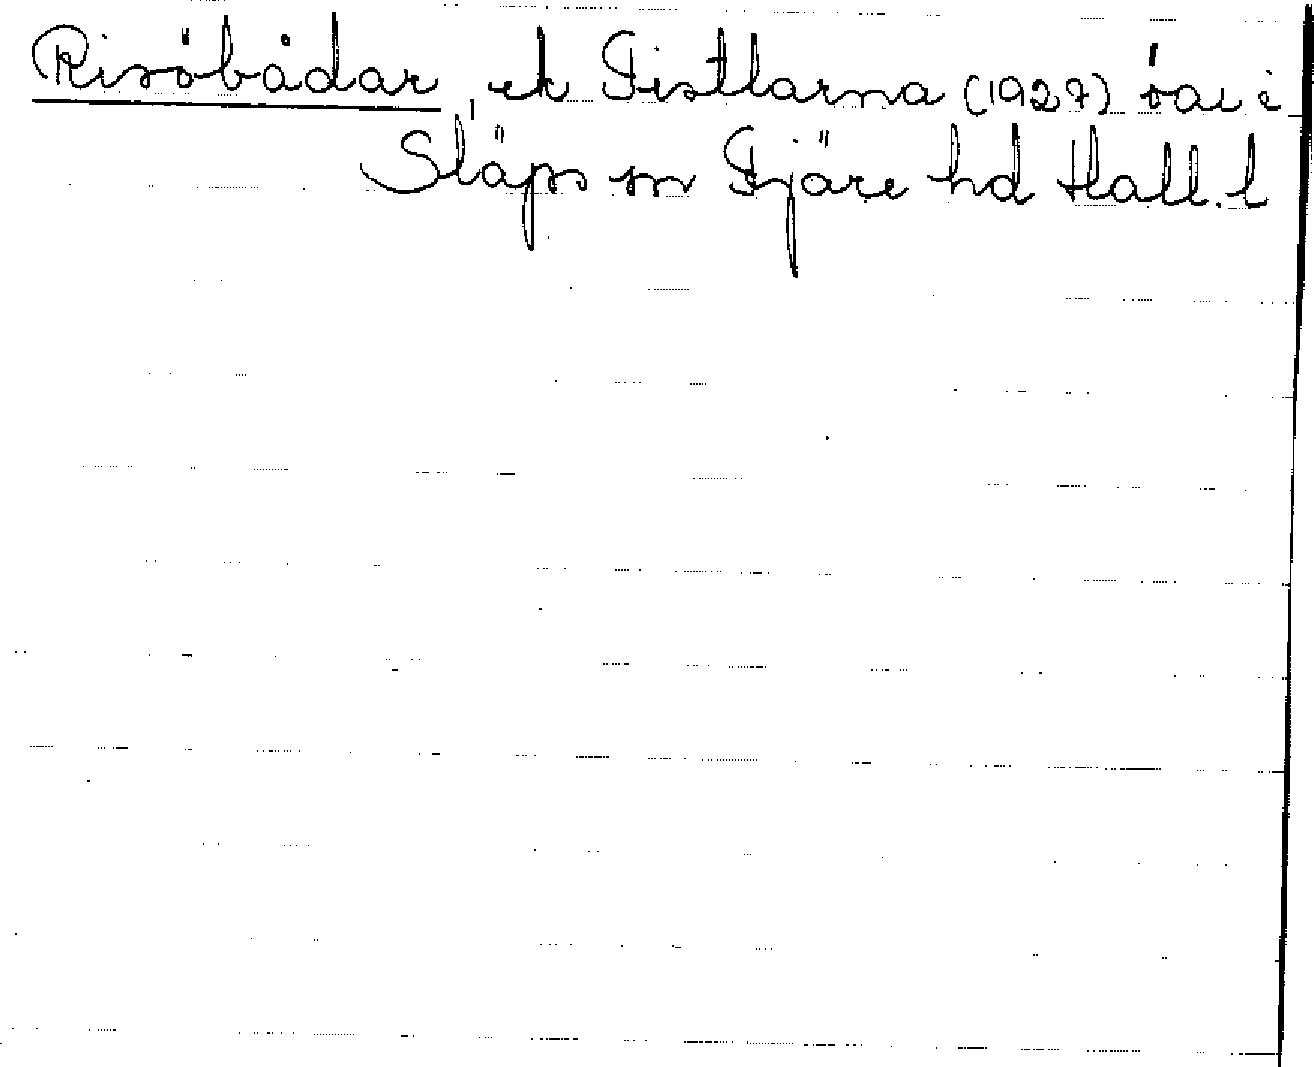 Risöbådar, ek Tistlarna (1927) öar i
Släps sn Fjäre hd Hall. l